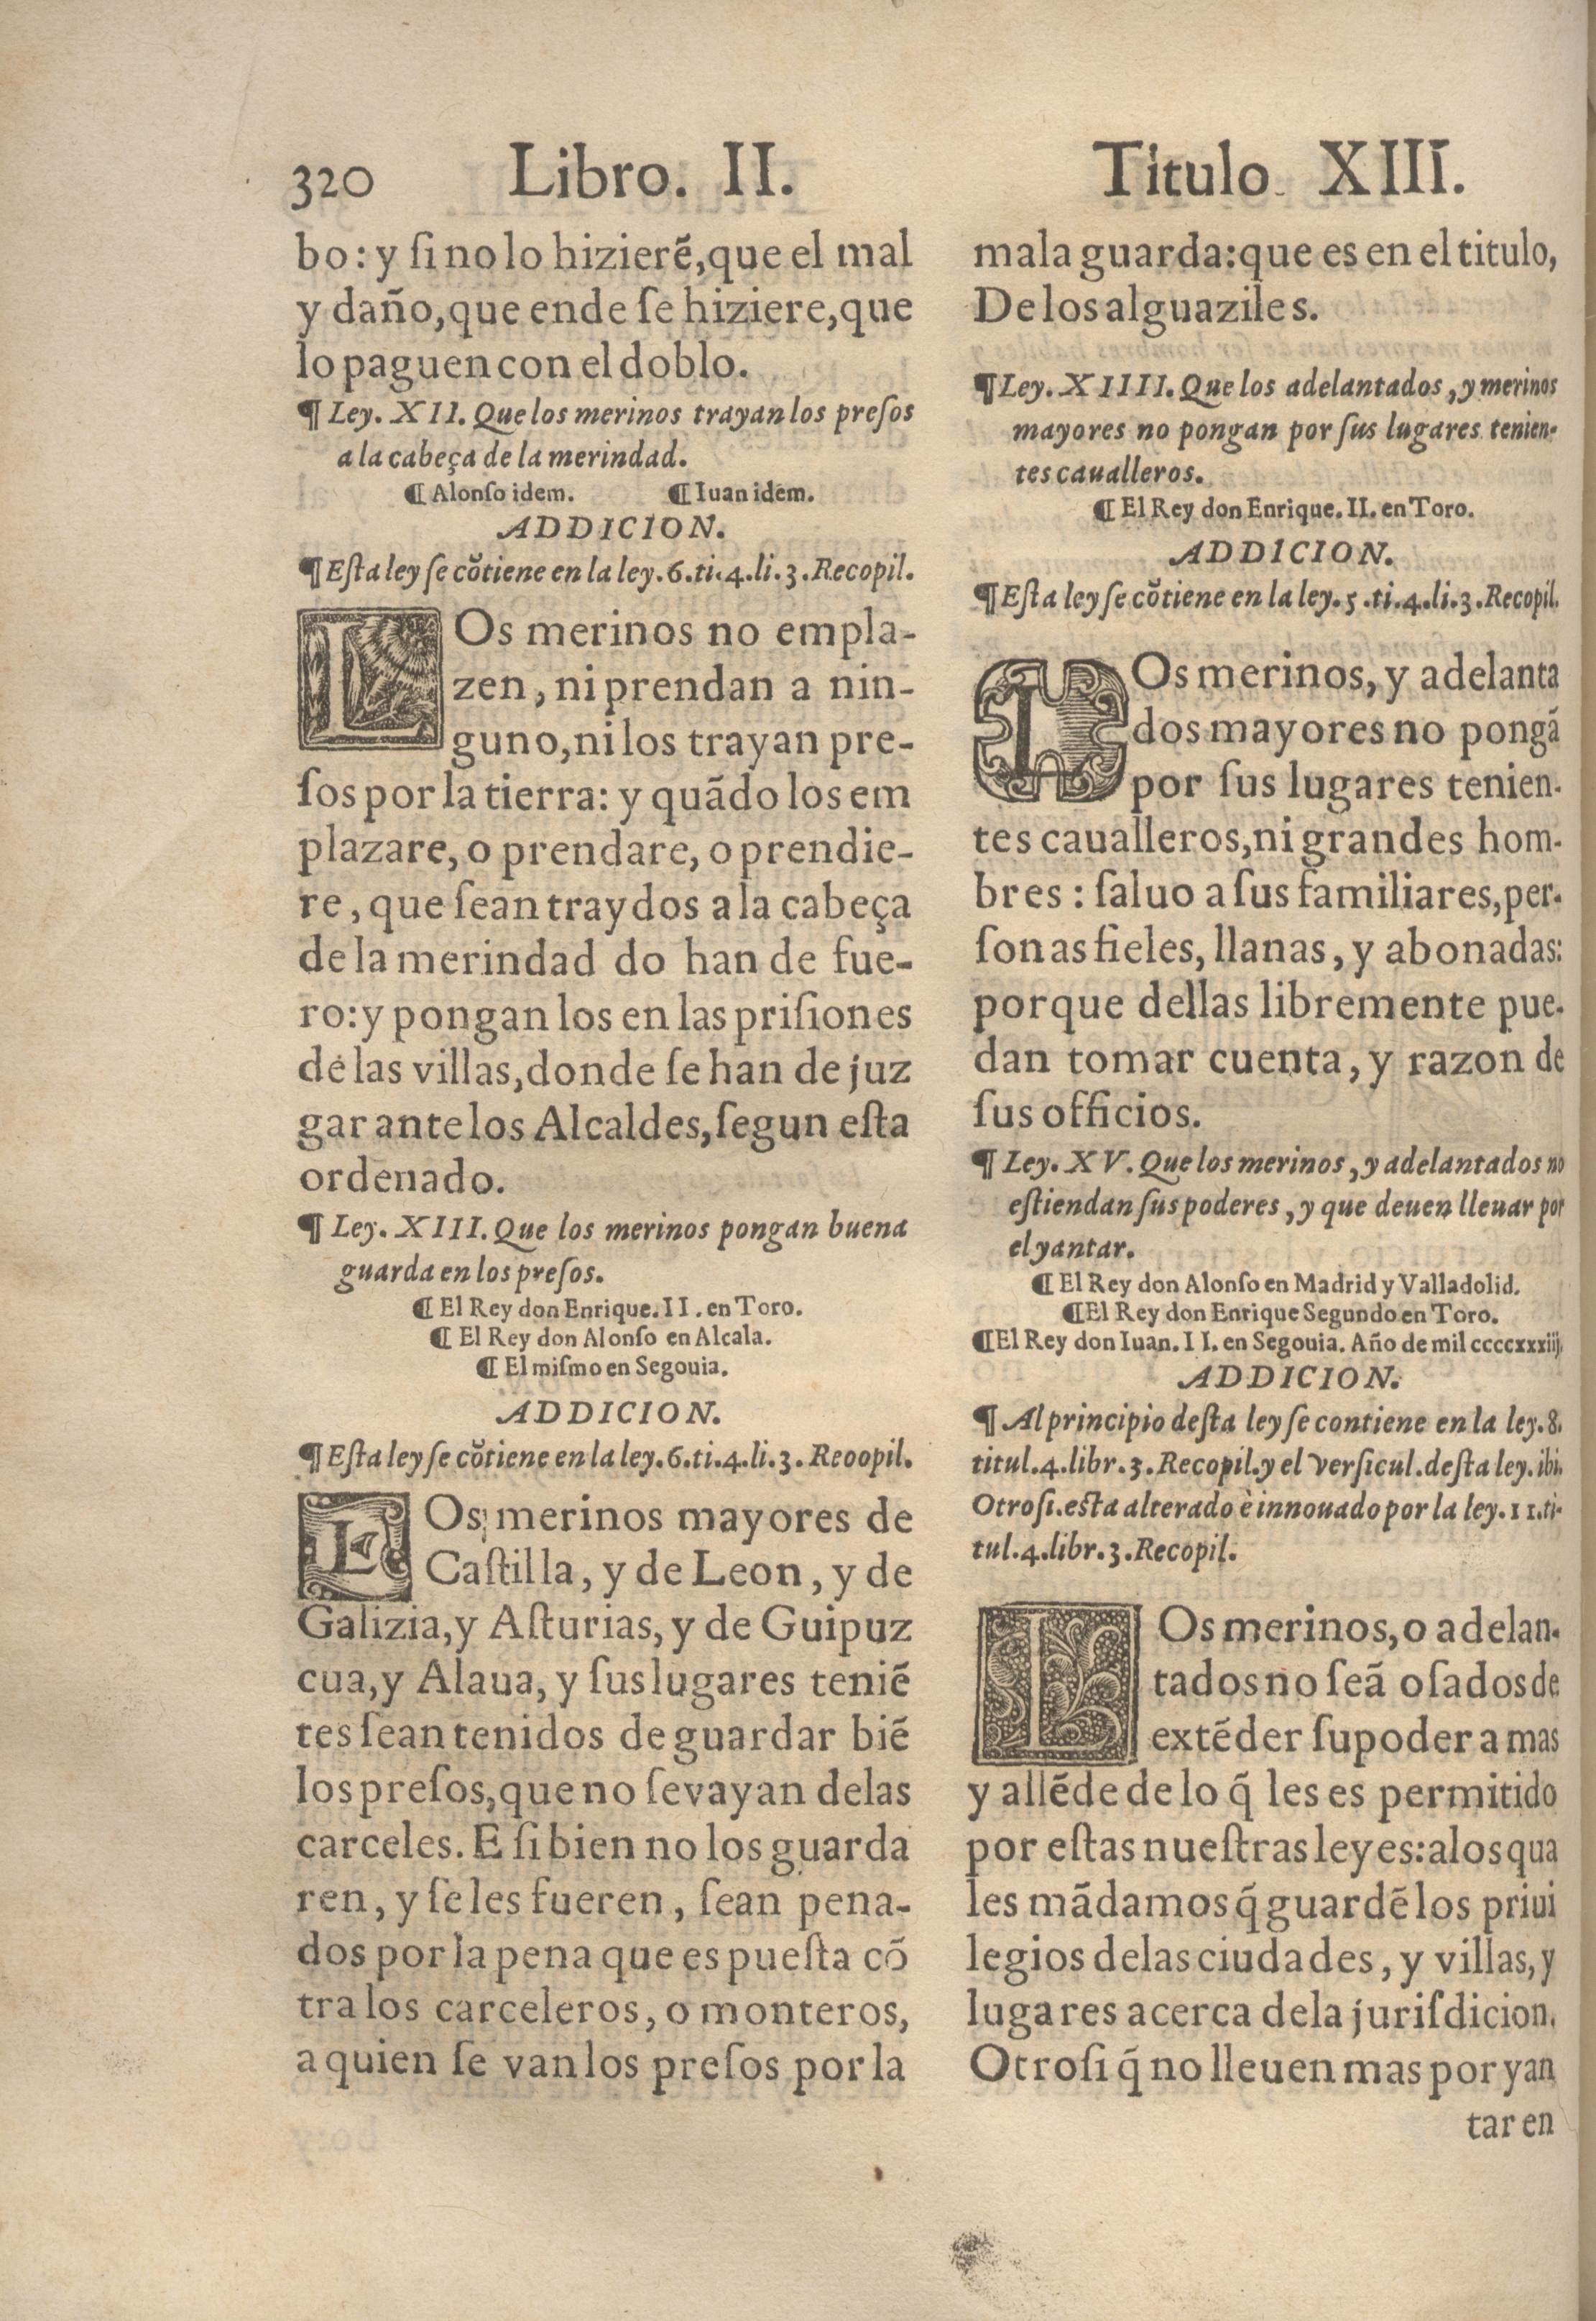 320 Libro. II. Titulo. XIII.
bo: y ſi no lo hizierẽ, que el mal
y daño, que ende ſe hiziere, que
lo paguen con el doblo.
¶ Ley. XII. Que los merinos trayan los preſos
a la cabeça de la merindad.
¶ Alonſo idem. ¶ Iuan idem.
ADDICION.
¶ Eſta ley ſe cõtiene en la ley. 6. ti. 4. li. 3. Recopil.
LOs merinos no empla-
zen, ni prendan a nin-
guno, ni los trayan pre-
ſos por la tierra: y quãdo los em
plazare, o prendare, o prendie-
re, que ſean traydos a la cabeça
de la merindad do han de fue-
ro: y pongan los en las priſiones
de las villas, donde ſe han de juz
gar ante los Alcaldes, ſegun eſta
ordenado.
¶ Ley. XIII. Que los merinos pongan buena
guarda en los preſos.
¶ El Rey don Enrique. II. en Toro.
¶ El Rey don Alonſo en Alcala.
¶ El miſmo en Segouia.
ADDICION.
¶ Eſta ley ſe cõtiene en la ley. 6. ti. 4. li. 3. Reoopil.
LOs merinos mayores de
Caſtilla, y de Leon, y de
Galizia, y Aſturias, y de Guipuz
cua, y Alaua, y ſus lugares teniẽ
tes ſean tenidos de guardar biẽ
los preſos, que no ſe vayan de las
carceles. E ſi bien no los guarda
ren, y ſe les fueren, ſean pena-
dos por la pena que es pueſta cõ
tra los carceleros, o monteros,
a quien ſe van los preſos por la
mala guarda: que es en el titulo,
De los alguaziles.
¶ Ley. XIIII. Que los adelantados, y merinos
mayores no pongan por ſus lugares tenien-
tes caualleros.
¶ El Rey don Enrique. II. en Toro.
ADDICION.
¶ Eſta ley ſe cõtiene en la ley. 5. ti. 4. li. 3. Recopil.
LOs merinos, y adelanta
dos mayores no pongã
por ſus lugares tenien-
tes caualleros, ni grandes hom-
bres: ſaluo a ſus familiares, per-
ſonas fieles, llanas, y abonadas:
porque dellas libremente pue-
dan tomar cuenta, y razon de
ſus officios.
¶ Ley. XV. Que los merinos, y adelantados no
eſtiendan ſus poderes, y que deuen lleuar por
el yantar.
¶ El Rey don Alonſo en Madrid y Valladolid.
¶ El Rey don Enrique Segundo en Toro.
¶ El Rey don Iuan. II. en Segouia. Año de mil ccccxxxiij.
ADDICION.
¶ Al principio deſta ley ſe contiene en la ley. 8.
titul. 4. libr. 3. Recopil. y el verſicul. deſta ley. ibi.
Otroſi. eſta alterado è innouado por la ley. 11. ti-
tul. 4. libr. 3. Recopil.
LOs merinos, o adelan-
tados no ſeã oſados de
extẽder ſu poder a mas
y allẽde de lo q̃ les es permitido
por eſtas nueſtras leyes: a los qua
les mãdamos q̃ guardẽ los priui
legios de las ciudades, y villas, y
lugares acerca de la juriſdicion.
Otroſi q̃ no lleuen mas por yan
tar en